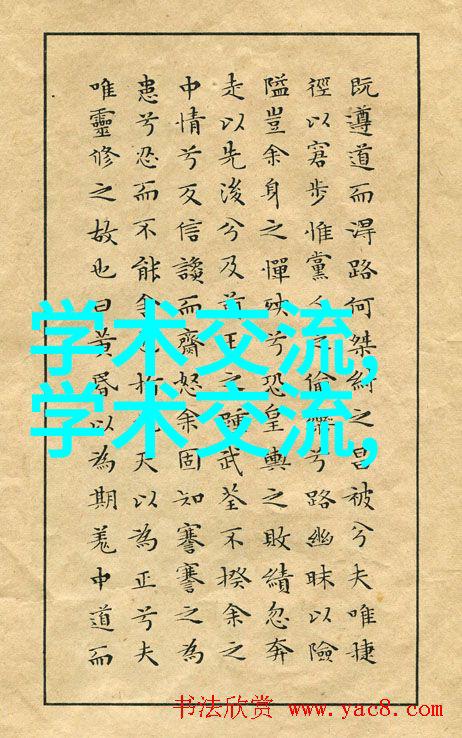 既遵道而得路何桀紂之昌被兮夫唯捷
徑以窘步惟黨人之偷樂兮路幽昧以險
隘豈余身之憚殃兮恐皇輿之敗績忽奔
走以先後兮及前王之踵武荃不揆余之
中情兮反信讒而齋怒余固知謇謇之為
患兮忍而不能舍也指天以為正兮夫
唯靈修之故也曰黃昏以為期羌中道而
学术交流,
学术交流,
书法欣赏 www.yac8.com